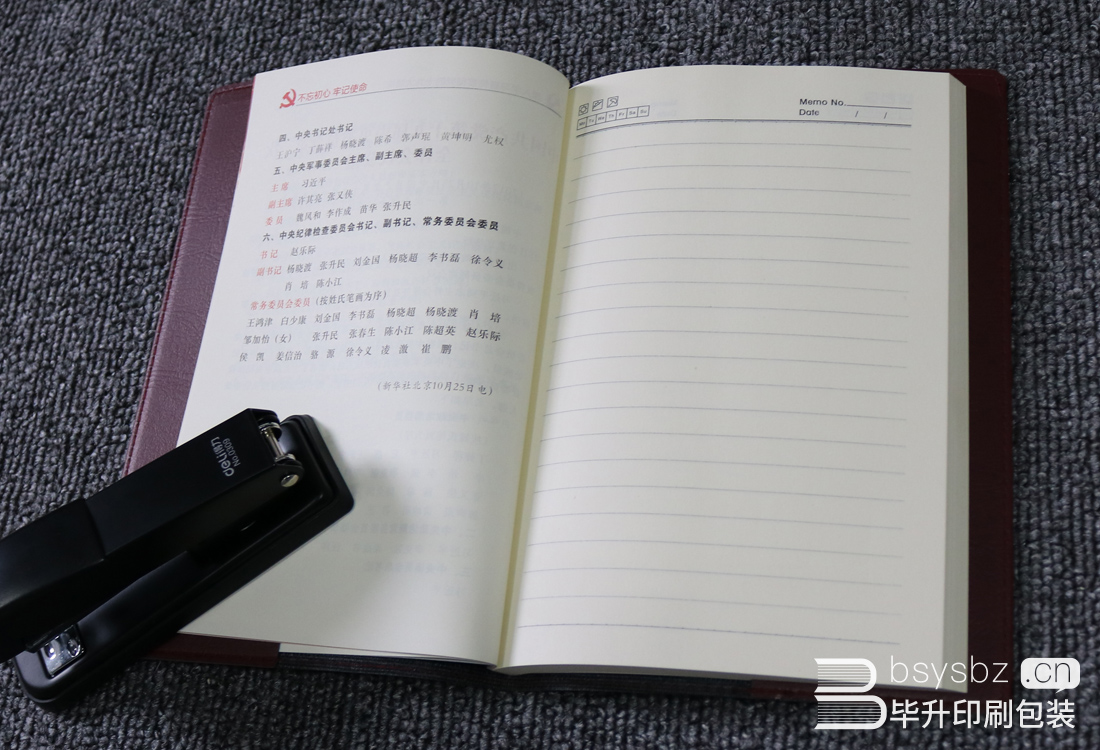 不忘初心 牢记使命
四、中央书记处书记
王沪宁 丁薛祥 杨晓渡 陈希 郭声琨 黄坤明 尤权
五、中央军事委员会主席、副主席、委员
主 席 习近平
副主席 许其亮 张又侠
委 员 魏凤和 李作成 苗华 张升民
六、中央纪律检查委员会书记、副书记、常务委员会委员
书 记 赵乐际
副书记 杨晓渡 张升民 刘金国 杨晓超 李书磊 徐令义
肖 培 陈小江
常务委员会委员（按姓氏笔画为序）
王鸿津 白少康 刘金国 李书磊 杨晓超 杨晓渡 肖 培
邹加怡（女） 张升民 张春生 陈小江 陈超英 赵乐际
侯 凯 姜信治 骆 源 徐令义 凌 激 崔 鹏
（新华社北京10月25日电）
Memo No.
Mo Tu We Th Fr Sa Su
Date / /
deli得力
No.0309
bsysbz .cn
毕升印刷包装